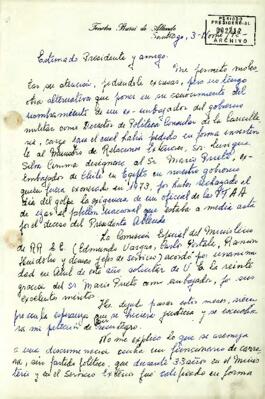 Tencha Bussi de Allende
PERIODO
PRESIDENCIAL
ARCHIVO
Santiago, 3-Nov
Estimado Presidente y amigo
Me permito moles
tar su atención, pidiéndole excusas, pero no tengo
otra alternativa que poner en su conocimiento del
nombramiento de un ex-embajador del gobierno
militar como Director de Política Consular de la Cancille
ria, cargo para el cual había pedido en forma insisten
te al Ministro de Relaciones Exteriores, Sr. Enrique
Silva Cimma designase al Sr Mario Prieto, ex-
embajador de Chile en Egipto en nuestro gobierno
quien fuera exonerado en 1973, por haber rechazado el
día del golpe la exigencia de un oficial de las FFAA
de izar el pabellón nacional que estaba a media asta
por el deceso del Presidente Allende
La Comisión Especial del Ministerio
de RR.EE. (Edmundo Vargas, Carlos Portales, Ramón
Huidobro y demás jefes de servicio) acordó por unanimi
dad en abril de este año solicitar de U. la reinte
gración del Sr Mario Prieto como embajador, por sus
excelentes méritos
He dejado pasar estos meses, siem
pre con la esperanza que se hiciera justicia y se escucha
ra mi petición
No me explico lo que se asemeja
a una discriminación contra un funcionario de carre
ra, sin partido político, que durante 33 años en el Minis
terio y en el Servicio Exterior fue calificado en forma